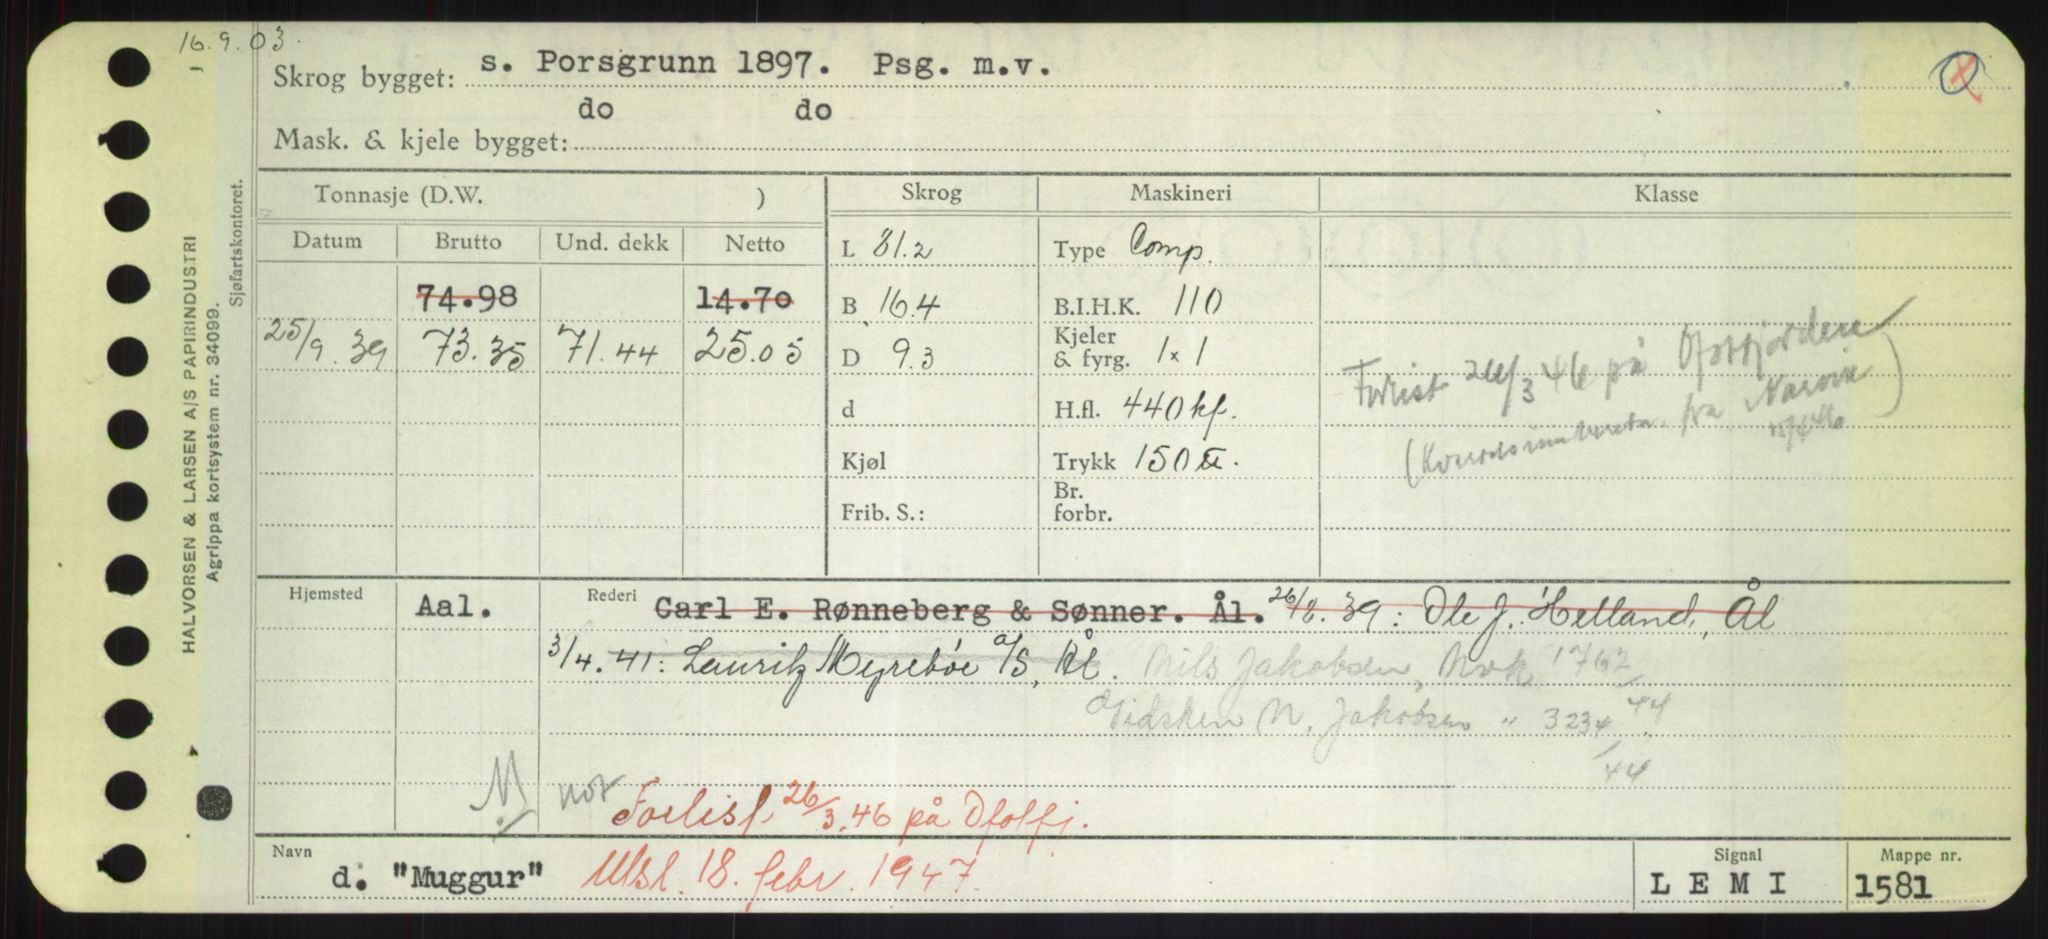 16.9.03.
Skrog bygget: s. Porsgrunn 1897. Psg. m.v.
do do
Mask. & kjele bygget:
HALVORSEN & LARSEN A/S PAPIRINDUSTRI
Agrippa kortsystem nr. 34099.
Sjøfartskontoret.
Tonnasje (D.W. ) Skrog Maskineri Klasse
Datum Brutto Und. dekk Netto
L 81.2 Type Comp.
74.98 14.70 B 16.4 B.I.H.K. 110
25/9.39 73.35 71.44 25.05 D 9.3 Kjeler & fyrg. 1x1
d H.fl. 440 kf.
Kjøl Trykk 150 ℔.
Frib. S.: Br. forbr.
Forlist 26/3 46 på Ofotfjorden
( fra Narvik )
Hjemsted Aal. Rederi Carl E. Rønneberg & Sønner. Ål. 26/8.39: Ole J. Helland, Ål
3/4.41: Lauritz Myrebøe a/s, Ål. Nils Jakobsen, Nvk 1762/44
Vidsken N. Jakobsen " 3234/44
N nor
Forlist 26/3.46 på Ofotfj.
Navn d. "Muggur" Utsl. 18. febr. 1947.
Signal LEMI
Mappe nr. 1581